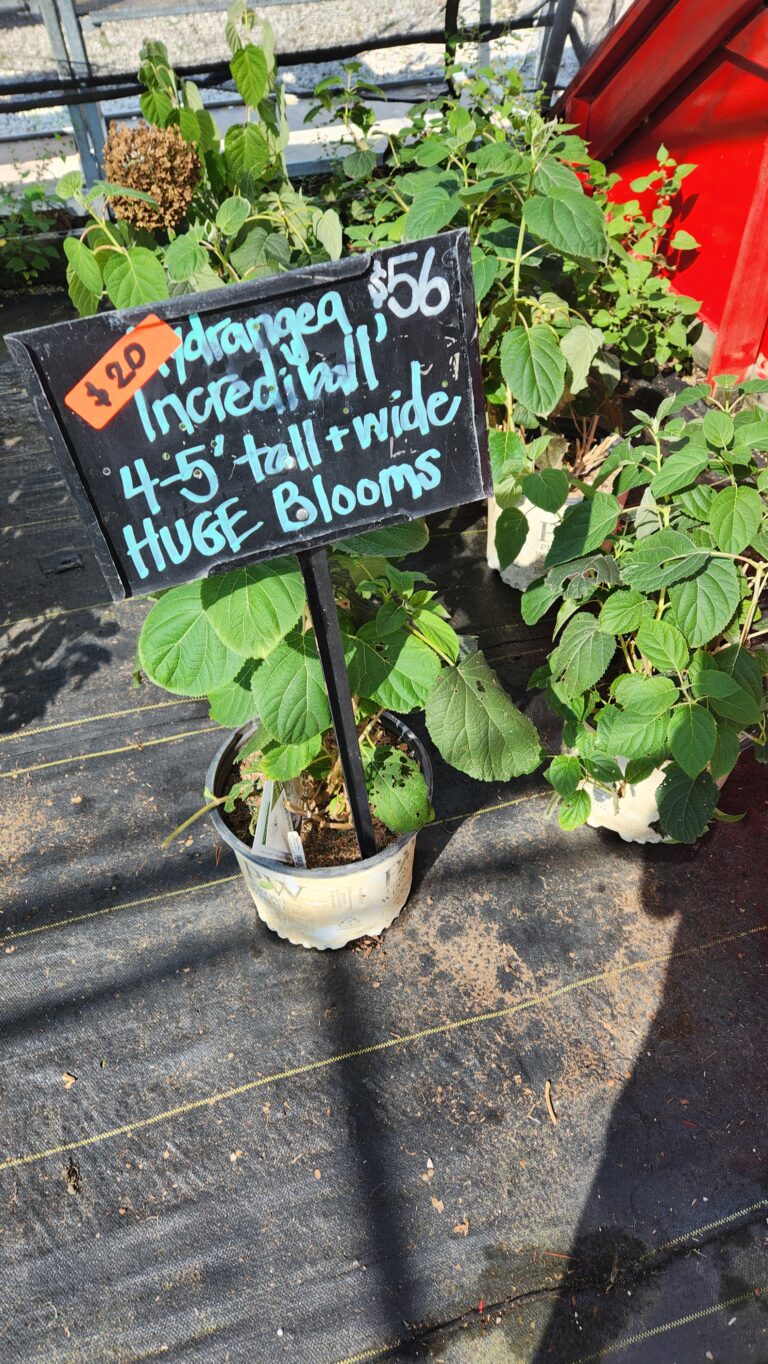 $56
$20
Hydrangea
'Incrediball'
4-5' tall + wide
HUGE Blooms
PW